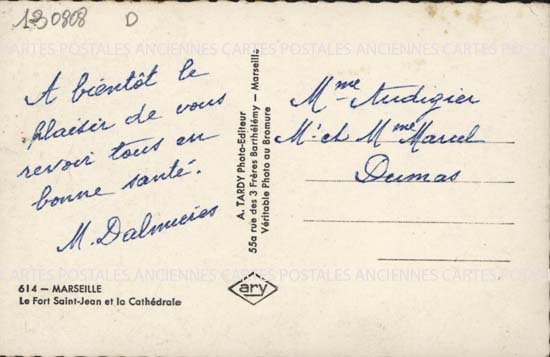 130808 D
CARTES POSTALES ANCIENNES CARTES POSTALES ANCIENNES
A bientôt le
plaisir de vous
revoir tous en
bonne santé.
M.
A. TARDY Photo-Editeur
55a rue des 3 Frères Barthélémy — Marseille
Véritable Photo au Bromure
Mme Audigier
Mr et Mme Marcel
Dumas
614 — MARSEILLE
Le Fort Saint-Jean et la Cathédrale
ary
CARTES POSTALES ANCIENNES CARTES POSTALES ANCIENNES